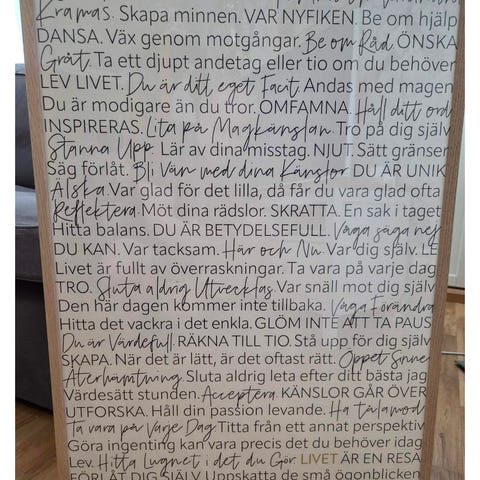 Kramas. Skapa minnen. VAR NYFIKEN. Be om hjälp
DANSA. Väx genom motgångar. Be om Råd ÖNSKA
Gråt. Ta ett djupt andetag eller tio om du behöver
LEV LIVET. Du är ditt eget Facit. Andas med magen
Du är modigare än du tror. OMFAMNA. Håll ditt ord
INSPIRERAS. Lita på Magkänslan. Tro på dig själv
Stanna Upp. Lär av dina misstag. NJUT. Sätt gränser
Säg förlåt. Bli Vän med dina Känslor. DU ÄR UNIK
Älska. Var glad för det lilla, då får du vara glad ofta
Reflektera. Möt dina rädslor. SKRATTA. En sak i taget
Hitta balans. DU ÄR BETYDELSEFULL. Våga säga nej
DU KAN. Var tacksam. Här och Nu. Var dig själv. LE
Livet är fullt av överraskningar. Ta vara på varje dag
TRO. Sluta aldrig Utvecklas. Var snäll mot dig själv
Den här dagen kommer inte tillbaka. Våga Förändra
Hitta det vackra i det enkla. GLÖM INTE ATT TA PAUS
Du är Värdefull. RÄKNA TILL TIO. Stå upp för dig själv
SKAPA. När det är lätt, är det oftast rätt. Öppet Sinne
Återhämtning. Sluta aldrig leta efter ditt bästa jag
Värdesätt stunden. Acceptera. KÄNSLOR GÅR ÖVER
UTFORSKA. Håll din passion levande. Ha tålamod
Ta vara på Varje Dag Titta från ett annat perspektiv
Göra ingenting kan vara precis det du behöver idag
Lev. Hitta Lugnet i det du Gör. LIVET ÄR EN RESA
FÖRLÅT DIG SJÄLV. Uppskatta de små ögonblicken